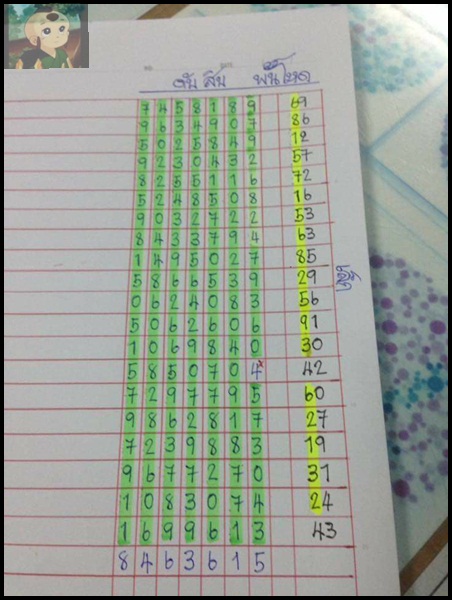 ดับ สิบ พันไหด
7 4 5 8 1 8 9 69
9 6 3 4 9 0 7 86
5 0 2 5 8 4 9 12
9 2 3 0 4 3 2 57
8 2 5 5 1 1 6 72
5 2 4 8 5 0 8 16
9 0 3 2 7 2 2 53
8 4 3 3 7 9 4 63
1 4 9 5 0 2 7 85
5 8 6 6 5 3 9 29
0 6 2 4 0 8 3 56
5 0 6 2 6 0 6 91
1 0 6 9 8 4 0 30
5 8 5 0 7 0 4 42
7 2 9 7 7 9 5 60
9 8 6 2 8 1 7 27
7 2 3 9 8 8 3 19
9 6 7 7 2 7 0 31
1 0 8 3 0 7 4 24
1 6 9 9 6 1 3 43
8 4 6 3 6 1 5